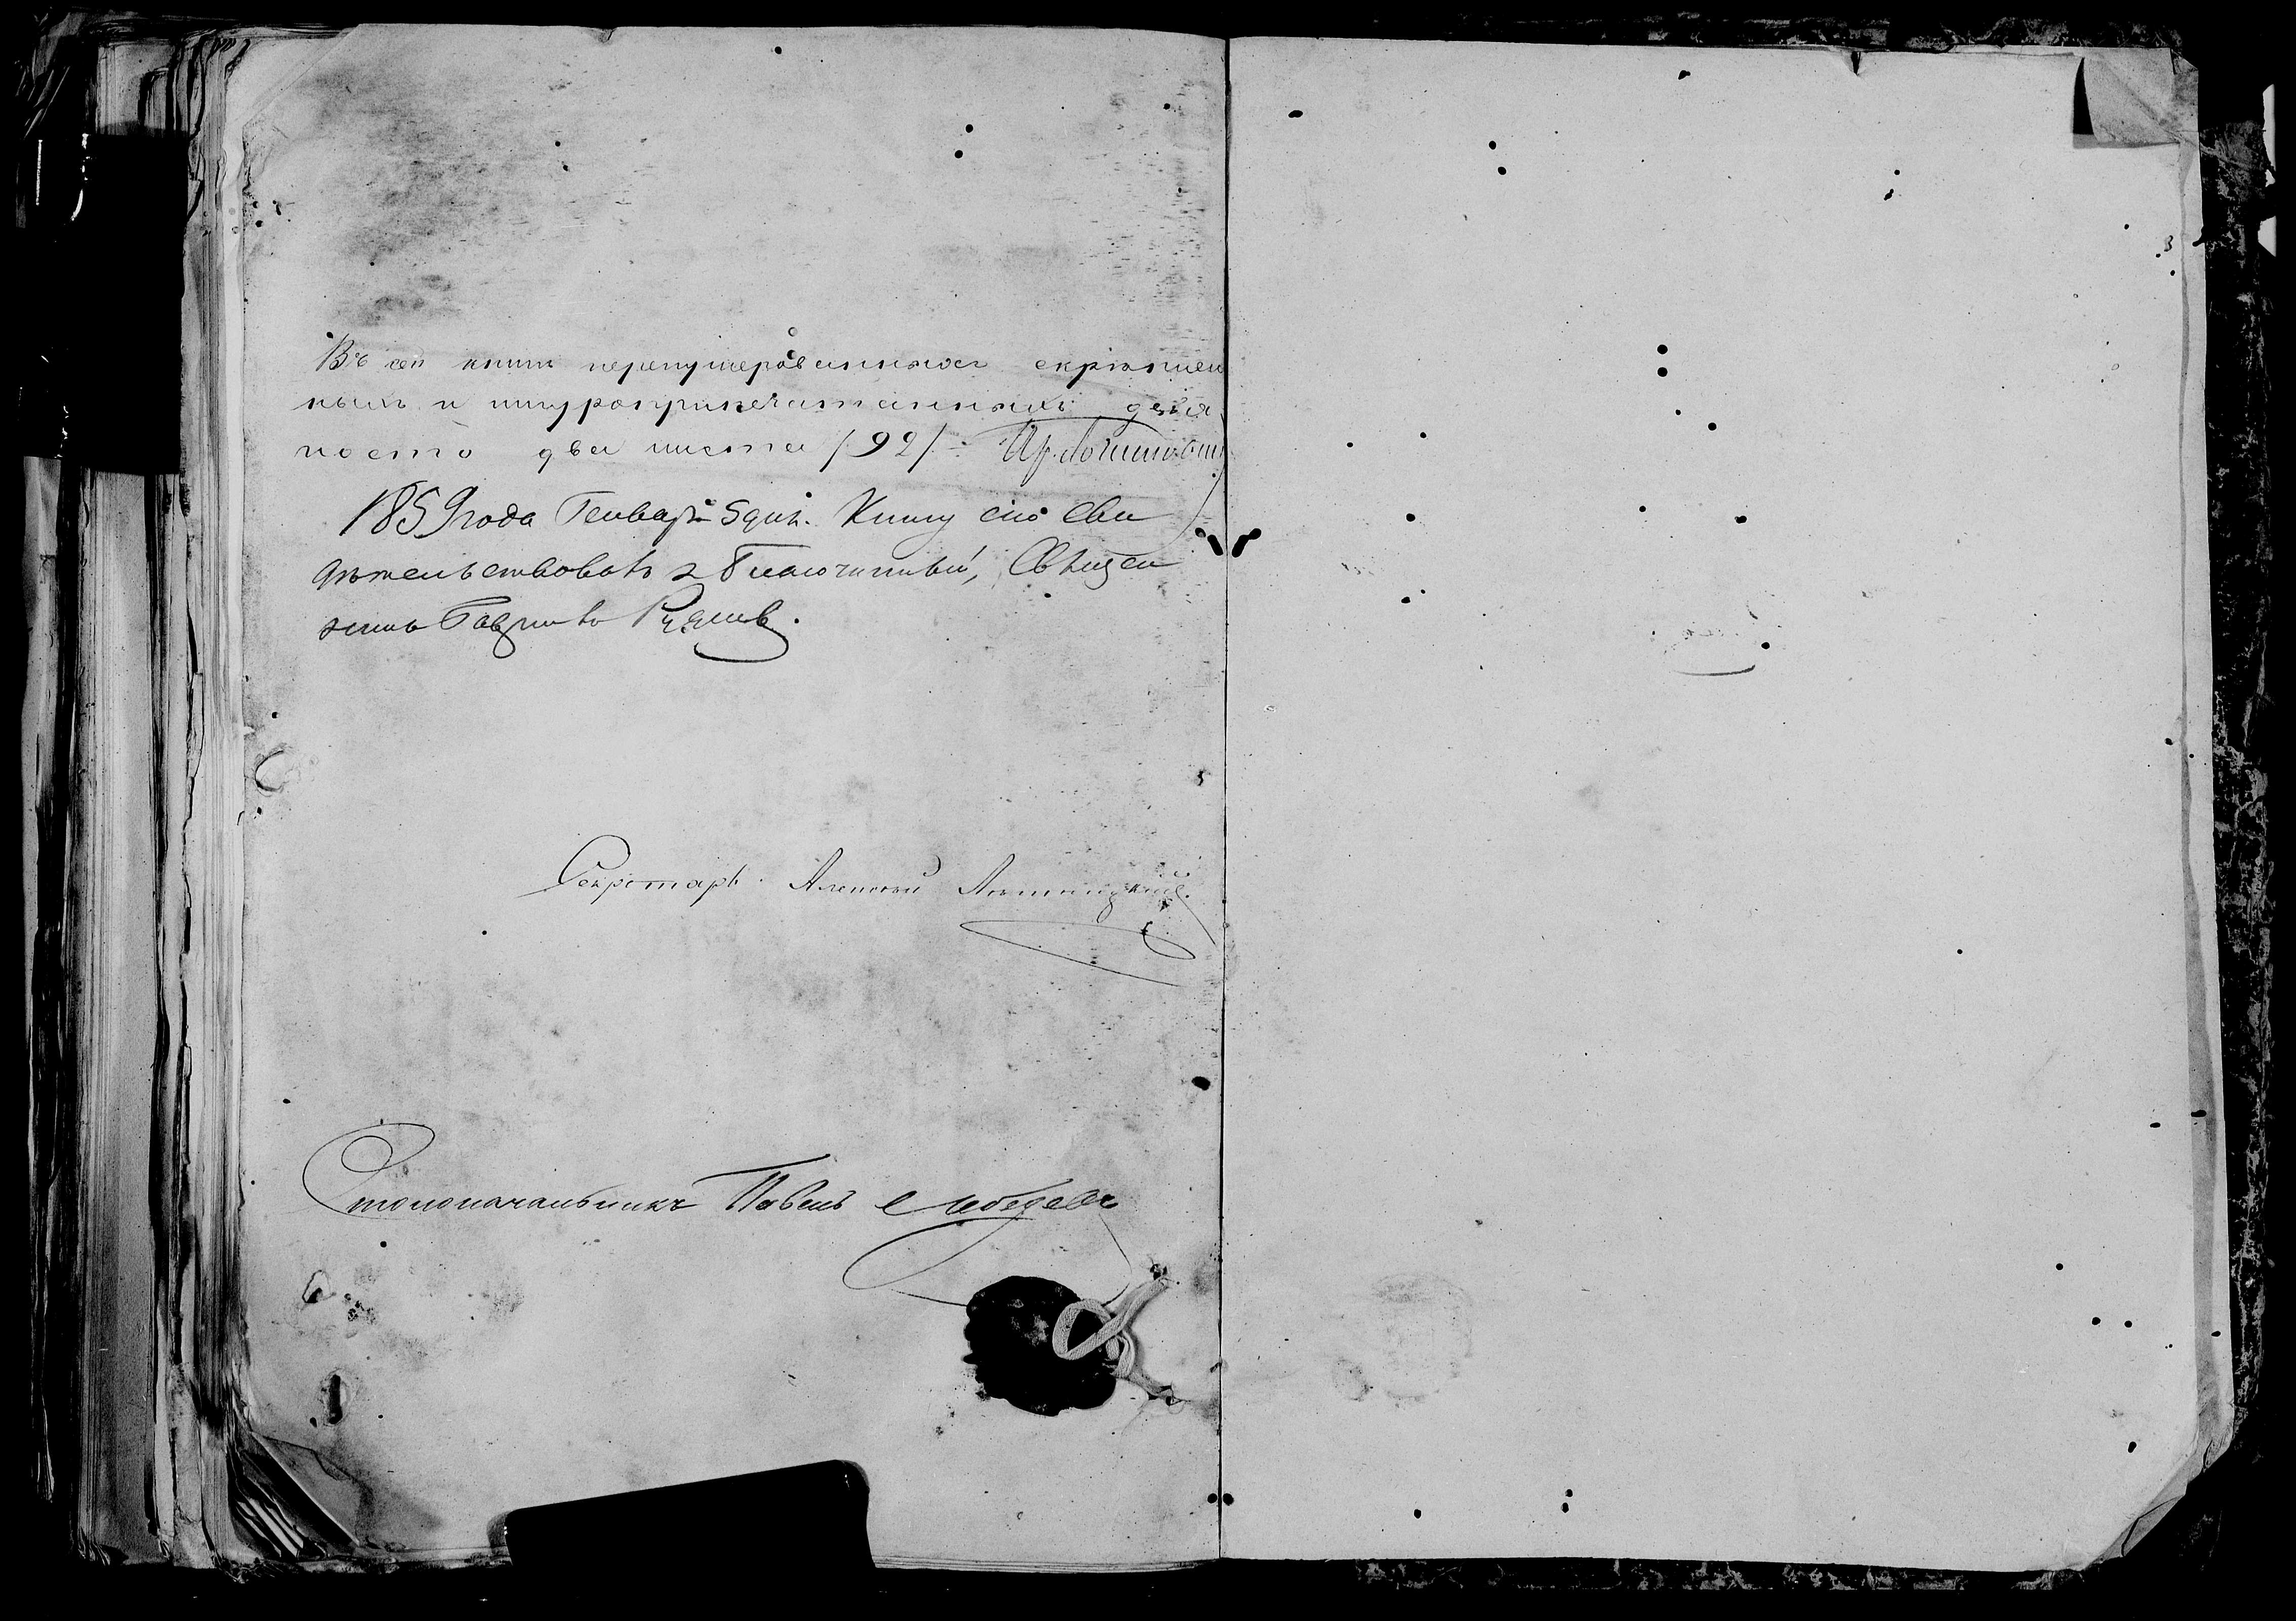 Въ сей книгѣ перенумерованныхъ скрѣплен
ныхъ и шнуроприпечатанныхъ девя
носто два листа /92/.
1859 года Генваря 5 дня. Книгу сію сви
дѣтельствовалъ Благочинный, Священ
никъ Гавріилъ
Секретарь Алексѣй
Столоначальникъ Павелъ Лебедевъ